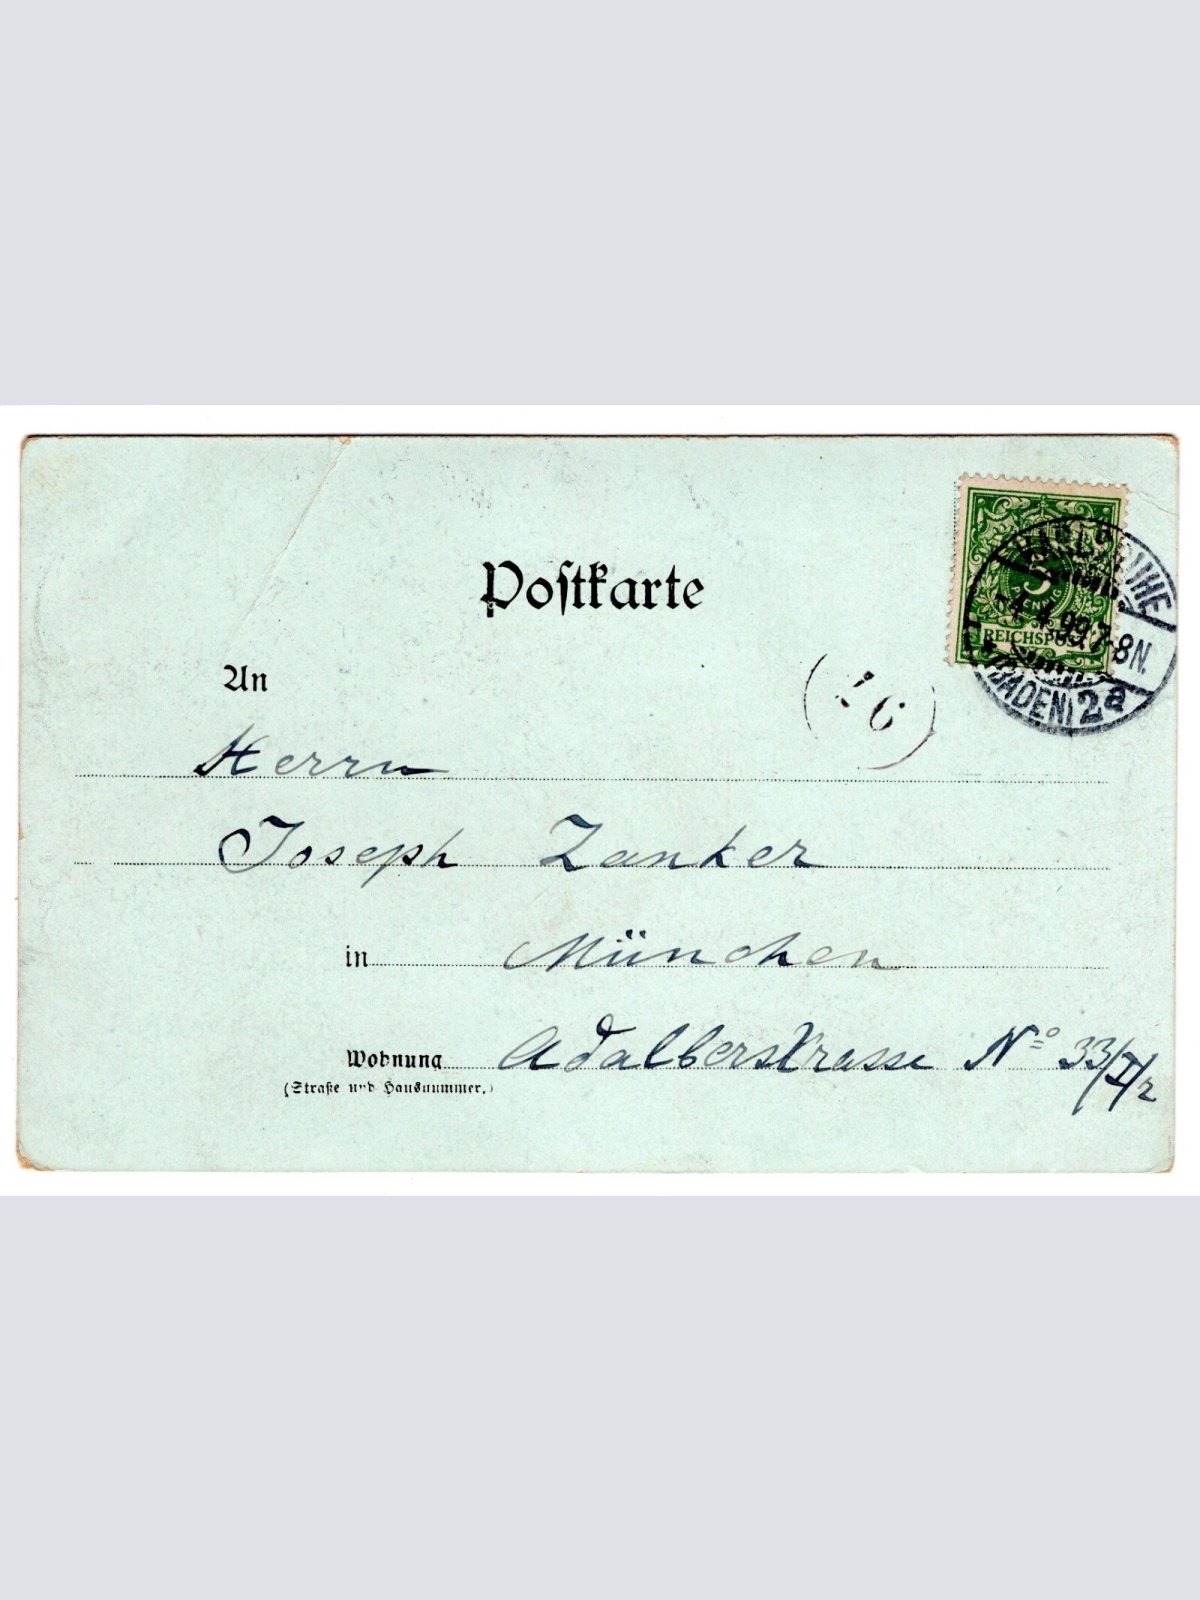 Postkarte
5
PFENNIG
REICHSPOST
KARLSRUHE
4.4.99.7-8N.
(BADEN) 2a
An
16
Herrn
Joseph Zanker
in München
Wohnung Adalberstrasse No 33/I/2
(Straße und Hausnummer.)